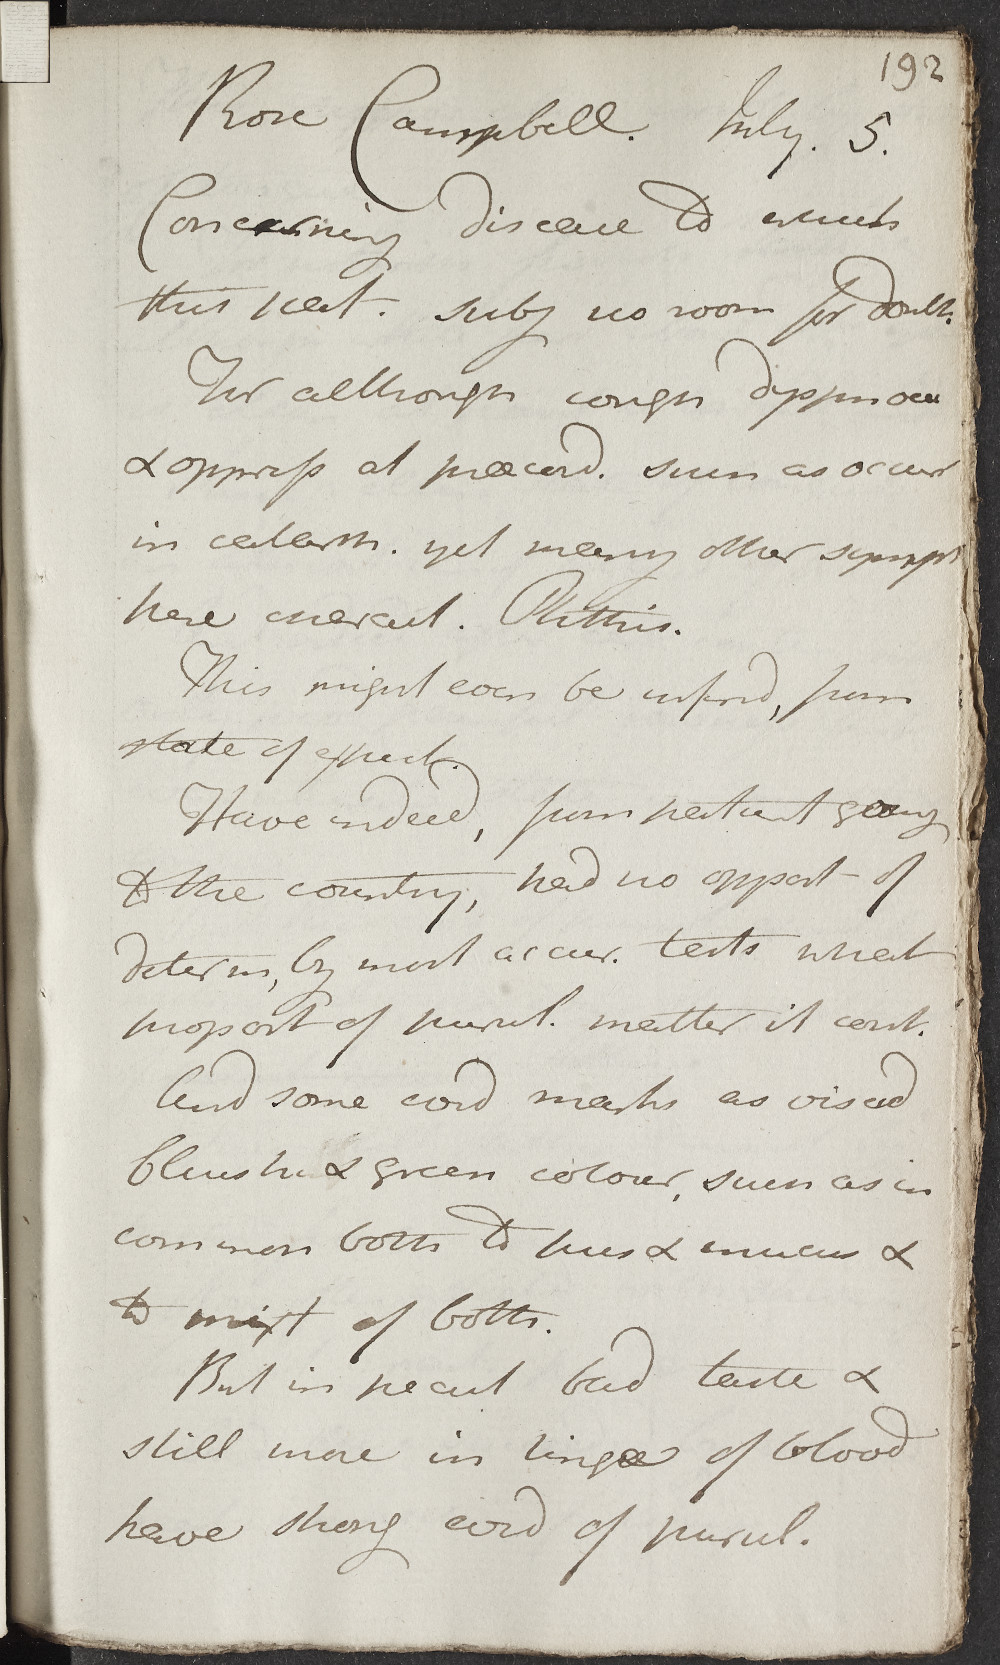 192
Rose Campbell. July. 5.
Concerning disease to which
this pat. subj no room for doubt.
For although cough dyspnoea
& oppress at præcord. such as occur
in catarrh. yet many other sympt
here charact. Phthis.
This might even be inferd, from
state of expect.
Have indeed, from patient going
to the country, had no opport of
determ, by most accur. tests what
proport of purul. matter it cont.
And some evid marks as viscid
bluish & green colour, such as in
common both to pus & mucus &
to mixt of both.
But in pecul bad taste &
still more in tinge of blood
have strong evid of purul.